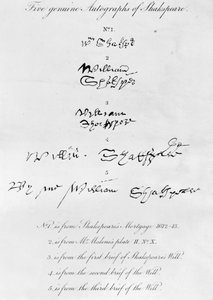 Five genuine Autographs of Shakspeare.
N.º 1.
Wm Shakspe
2
William
Shakspere
3
William
Shakspere
4
Willm. Shakspere
5
By me William Shakspeare
N.º 1. is from Shakspeare's Mortgage 1612-13.
2. is from Mr. Malone's plate II. N.º X.
3. is from the first brief of Shakspeare's Will.
4. is from the second brief of the Will.
5. is from the third brief of the Will.